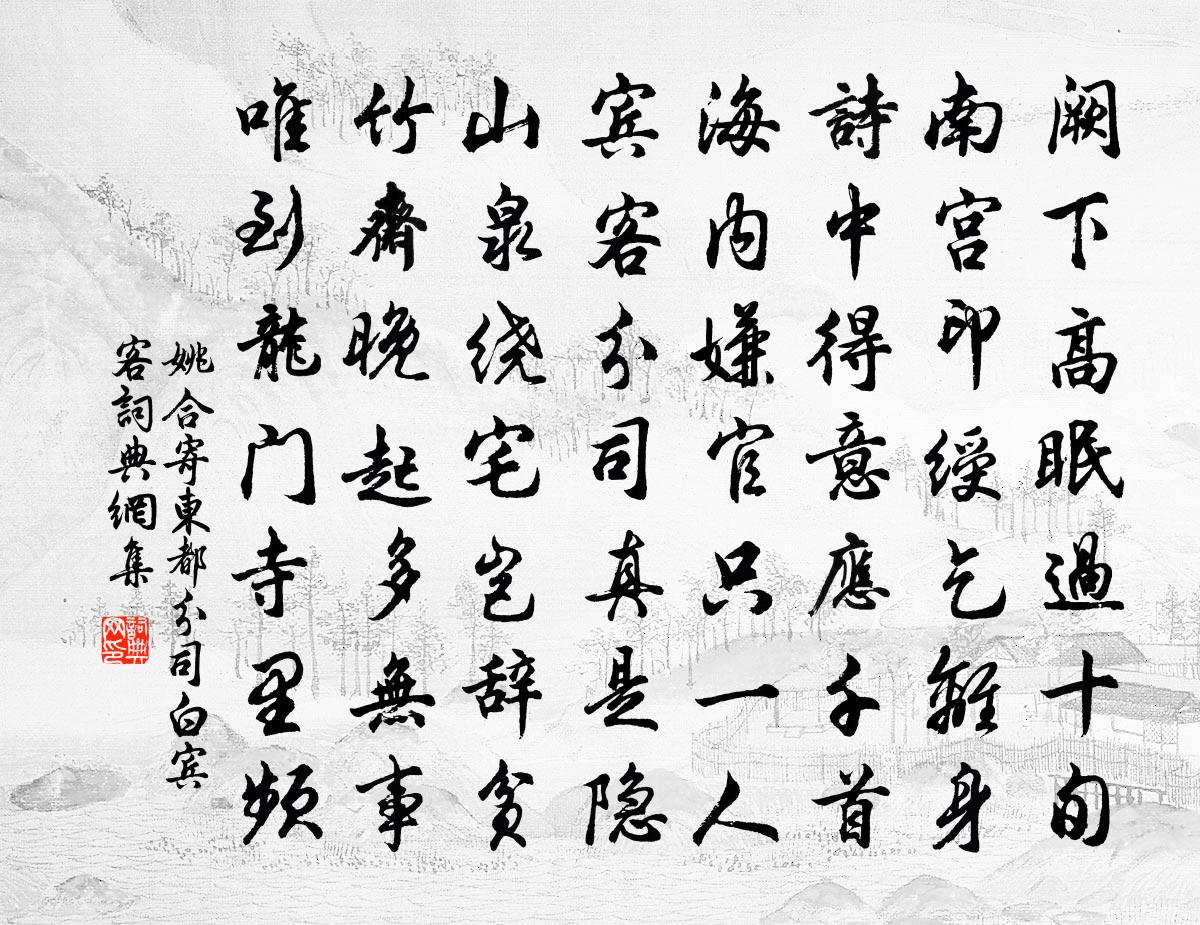 阙下高眠過十旬
南宫印綬乞離身
詩中得意應千首
海内嫌官只一人
宾客分司真是隐
山泉绕宅岂辞贫
竹齋晚起多無事
唯到龍门寺里频
姚合寄東都分司白宾
客詞典網集
詞典
网印